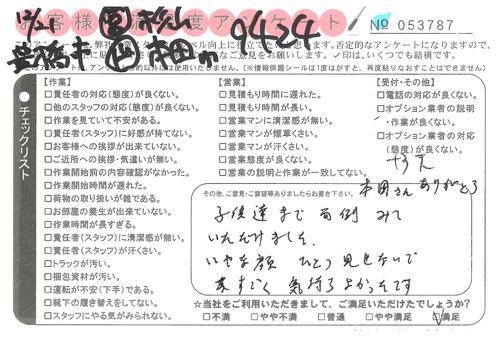 お客様満足度アンケート
№ 053787
12/21
9424
本田
アンケートは、弊社
向上に役立て
思います。否定的なアンケートになりますので、
お願いします。✓印は、いくつでも結構です。
アンケート目的以外は使用いたしません。(情報保護シールは1度はがすと、再度貼りなおすことはできません)
チェックリスト
【作業】
□責任者の対応(態度)が良くない。
□他のスタッフの対応(態度)が良くない。
□作業を見ていて不安がある。
□責任者(スタッフ)に好感が持てない。
□お客様への挨拶が出来ていない。
□ご近所への挨拶・気遣いが無い。
□作業開始前の内容確認がなかった。
□作業開始時間が遅れた。
□荷物の取り扱いが雑である。
□お部屋の養生が出来ていない。
□作業時間が長すぎる。
□責任者(スタッフ)に清潔感が無い。
□責任者(スタッフ)が汗くさい。
□トラックが汚い。
□梱包資材が汚い。
□運転が不安(下手)である。
□靴下の履き替えをしてない。
□スタッフにやる気がみられない。
【営業】
□見積もり時間に遅れた。
□見積もり時間が長い。
□営業マンに清潔感が無い。
□営業マンが煙草くさい。
□営業マンが汗くさい。
□営業態度が良くない。
□営業の説明と作業が一致してない。
【受付・その他】
□電話の対応が良くない。
□オプション業者の説明
・作業が良くない。
□オプション業者の対応
(態度)が良くない。
その他、ご意見・ご要望等ありましたらお書き下さい。
本田さんありがとう
子供達まで面倒みて
いただけました。
いやな顔ひとつ見せないで
すごく気持ちよかったです
☆当社をご利用いただきまして、ご満足いただけたでしょうか?
□不満 □やや不満 □普通 □やや満足 ☑満足